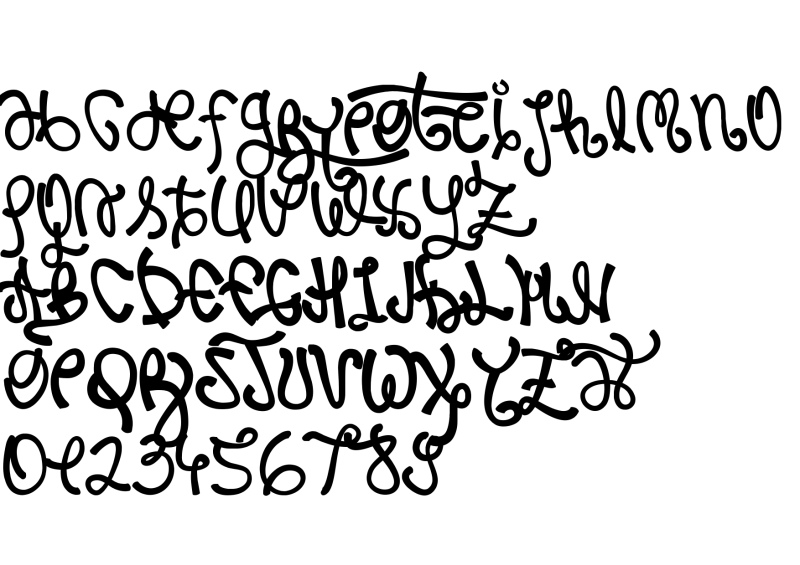 abcdefg ijklmno
pqrstuvwxyz
ABCDEFGHIJKLMN
OPQRSTUVWXYZ
0123456789